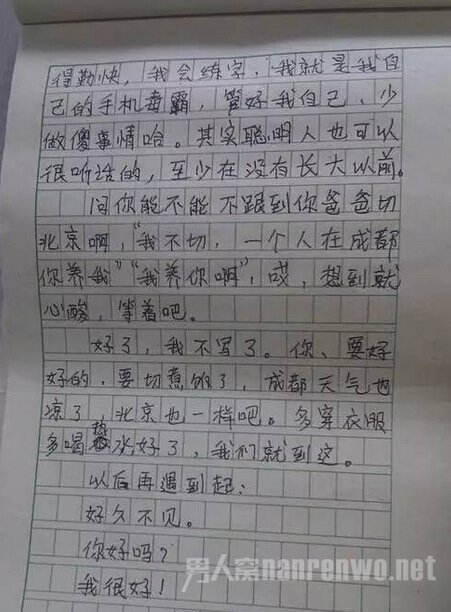 得勤快，我会练字，我就是我自
己的手机毒霸，管好我自己，少
做傻事情哈。其实聪明人也可以
很听话的，至少在没有长大以前。
问你能不能不跟到你爸爸切
北京啊，“我不切，一个人在成都
你养我”“我养你啊”，哎，想到就
心酸，等着吧。
好了，我不写了。你、要好
好的，要切煮的了，成都天气也
凉了，北京也一样吧。多穿衣服
多喝热水好了，我们就到这。
以后再遇到起：
好久不见。
你好吗？
我很好！
男人窝nanrenwo.net